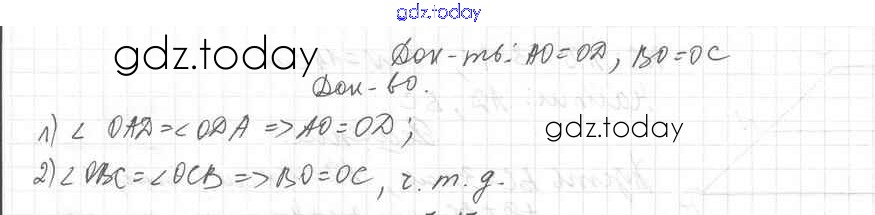 gdz.today
gdz.today
Док-ть: AO=OD, BO=OC
Док-во.
1) ∠ OAD=∠ODA => AO=OD;
gdz.today
2) ∠OBC=∠OCB=>BO=OC, ч. т. д.